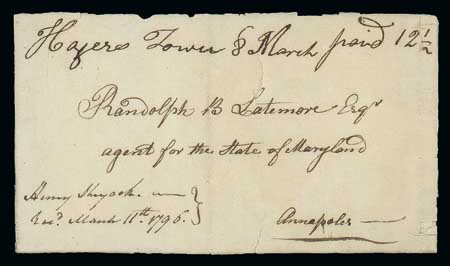 Hagers Town 8 March paid 12 1/2
Randolph B Latemore Esqr
agent for the State of Maryland
Henry Shryock
Recd. March 11th. 1796.
Annapolis